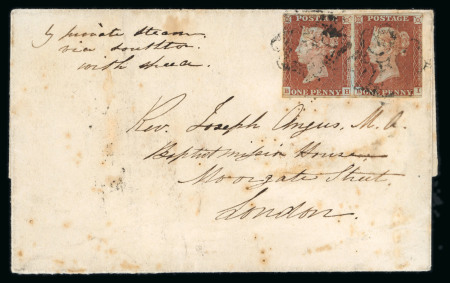 by private steam
via Southtn
with speed
POSTAGE POSTAGE
ONE PENNY ONE PENNY
Rev. Joseph Angus, M.A.
Baptist mission House
Moorgate Street
London.